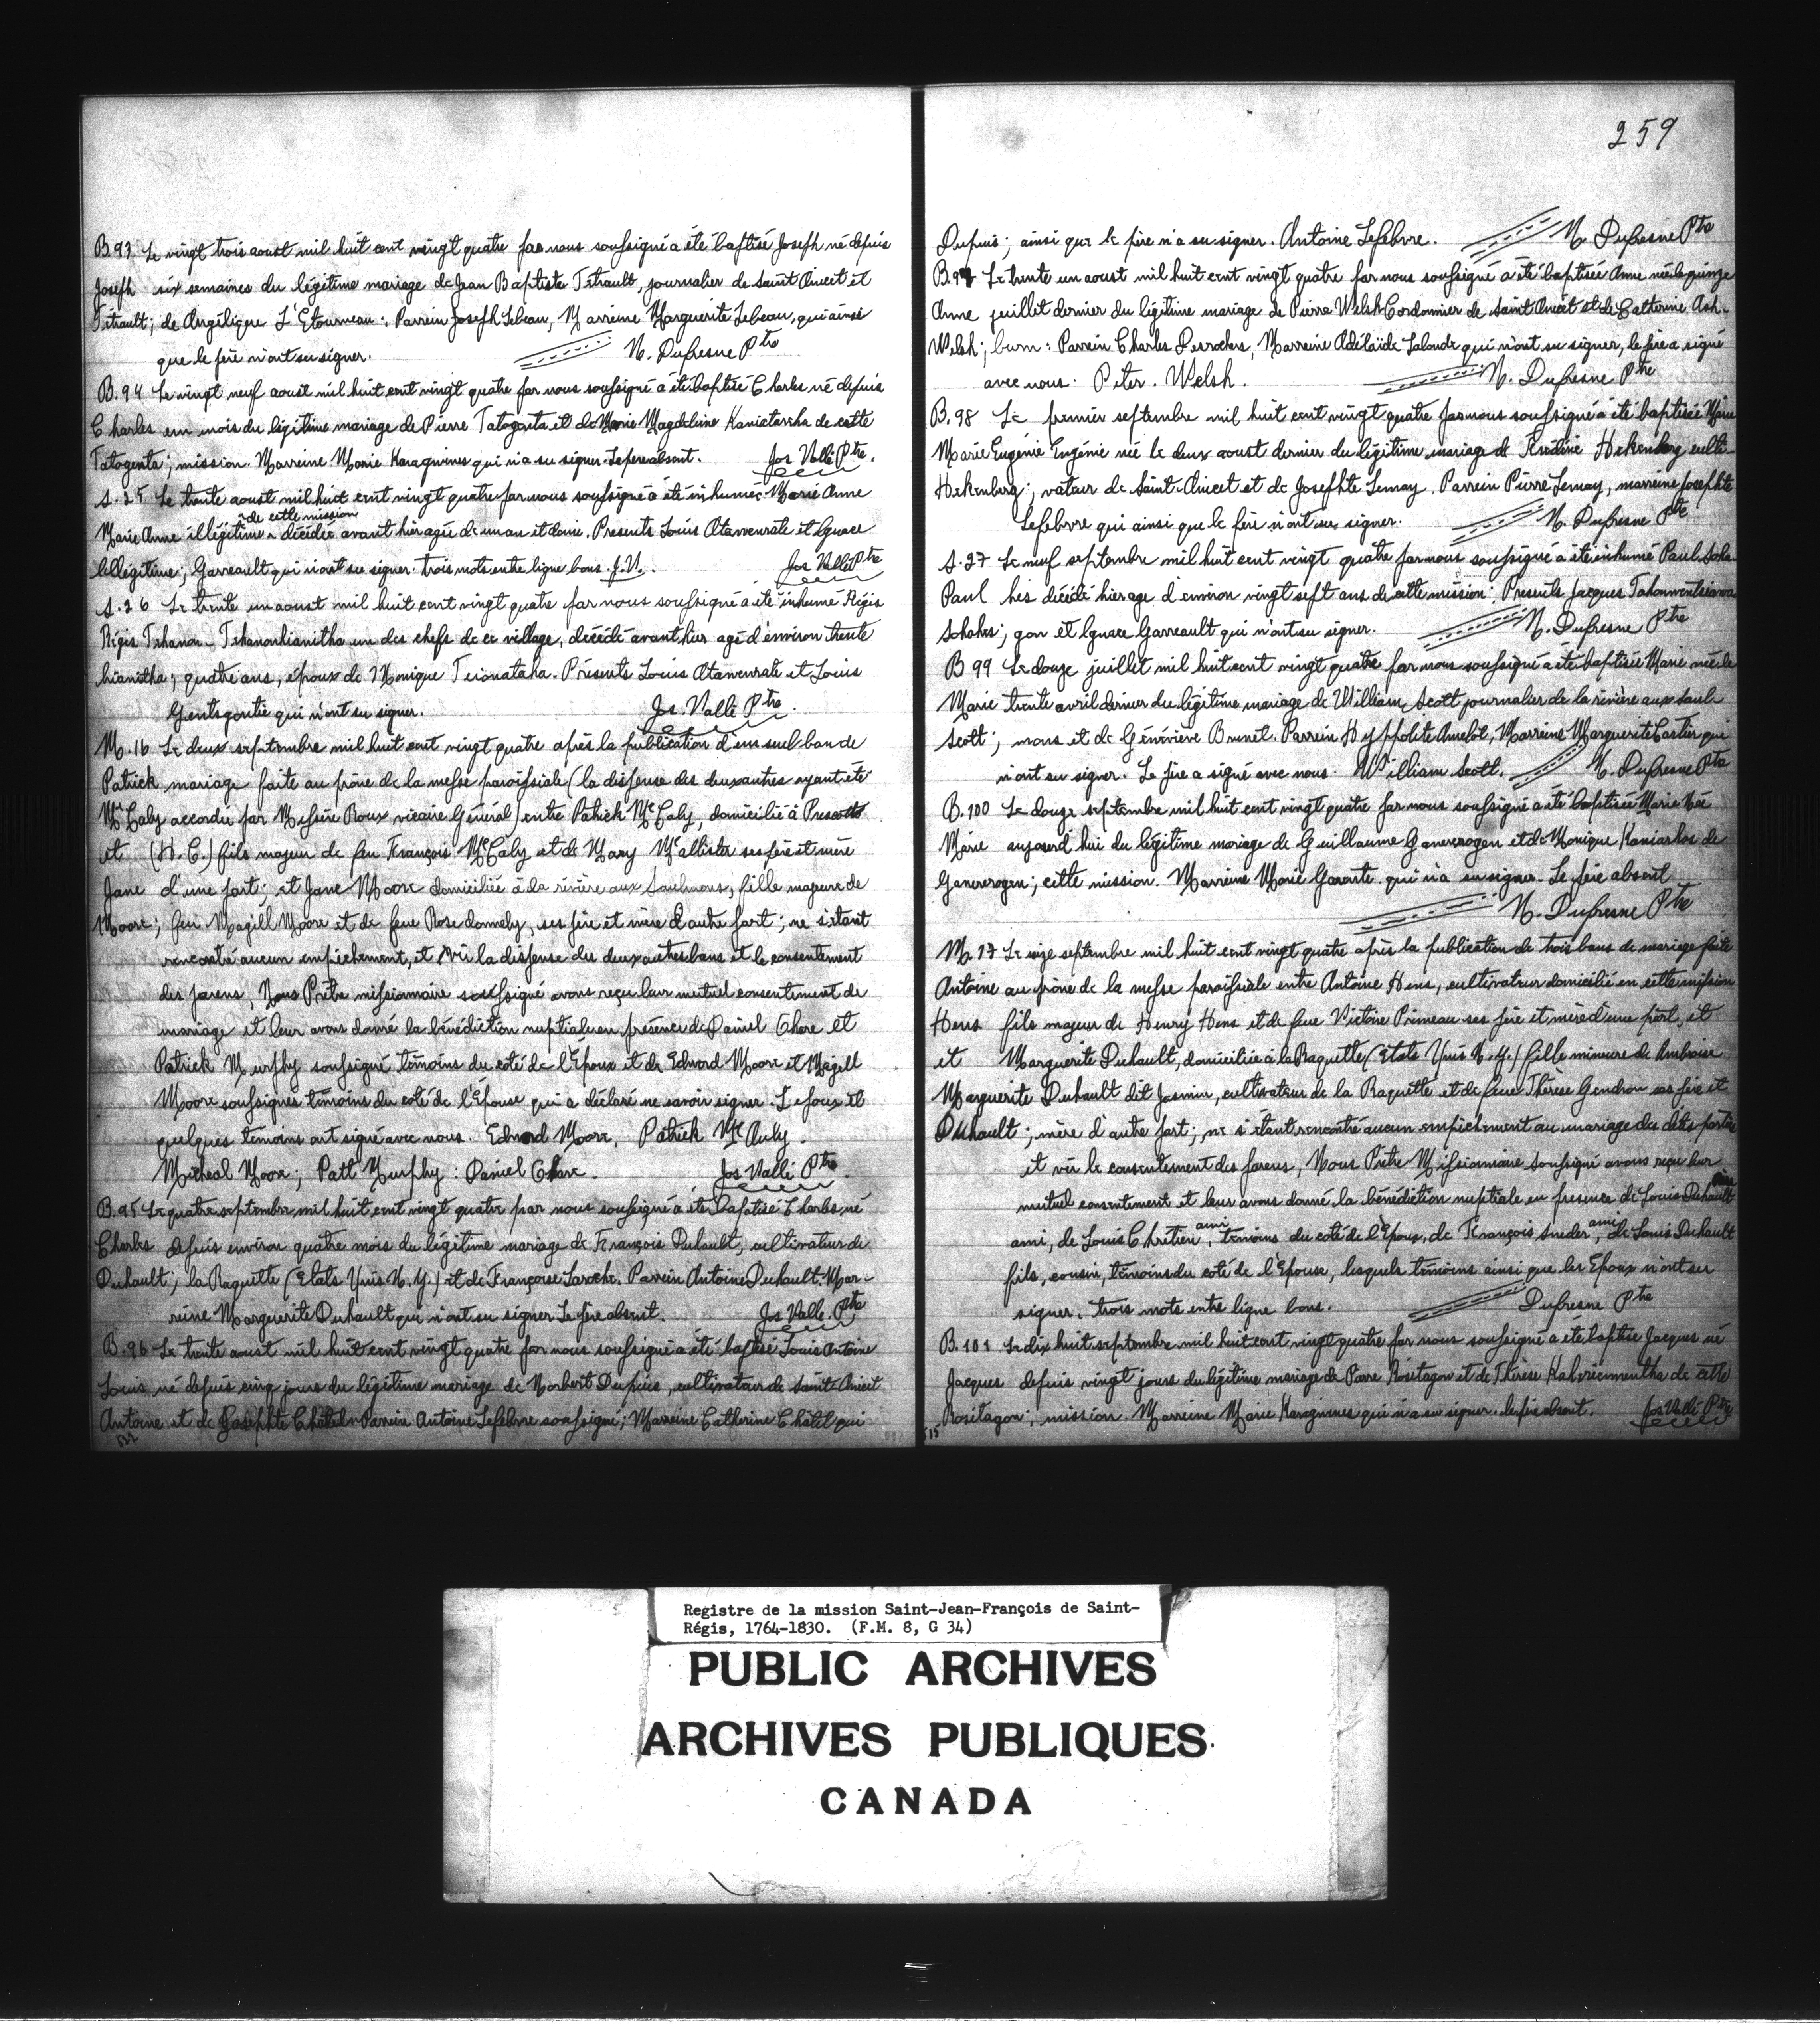 259
B.93 Le vingt trois aoust mil huit cent vingt quatre par nous soussigné a été baptisé Joseph né depuis
Joseph six semaines du légitime mariage de Jean Baptiste Tétrault, journalier de saint Anicet et
Tétrault; de Angélique L'Étourneau: Parrein Joseph Lebeau, Marreine Marguerite Lebeau, qui ainsi
que le père n'ont su signer. N. Dufresne Ptre
B.94 Le vingt neuf aoust mil huit cent vingt quatre par nous soussigné a été baptisé Charles né depuis
Charles un mois du légitime mariage de Pierre Tatogenta et de Marie Magdeleine Kaniatarrha de cette
Tatogenta; mission. Marreine Marie Karagwines qui n'a su signer. Le père absent. Jos Vallé Ptre.
S.25 Le trente aoust mil huit cent vingt quatre par nous soussigné a été inhumée Marie Anne
de cette mission
Marie Anne illégitime ^ décédée avant hier agée de un an et demi. Presents Louis Atawenrate et Ignace
Illégitime; Garreault qui n'ont su signer. trois mots entre ligne bons. J.V. Jos Vallé Ptre
S.26 Le trente un aoust mil huit cent vingt quatre par nous soussigné a été inhumé Régis
Régis Tehanon- Tehanonhianitha un des chefs de ce village, décédé avant hier agé d'environ trente
hianitha; quatre ans, époux de Monique Teionataha. Présents Louis Atawenrate et Louis
Gentsgontie qui n'ont su signer. Jos. Vallé Ptre.
M.16 Le deux septembre mil huit cent vingt quatre après la publication d'un seul ban de
Patrick mariage faite au prône de la messe paroissiale (la dispense des deux autres ayant été
Mc Caly accordée par Messire Roux vicaire Général) entre Patrick Mc Caly, domicilié à Prescott
et (H.C.) fils majeur de feu François Mc Caly et de Mary Mcallister ses père et mère
Jane d'une part; et Jane Moore domiciliée à la rivière aux Saulmons, fille majeure de
Moore; feu Magill Moore et de feue Rose donnely, ses père et mère d'autre part; ne s'étant
rencontré aucun empêchement, et vû la dispense des deux autres bans et le consentement
des parens, Nous Prêtre missionnaire soussigné avons reçu leur mutuel consentement de
mariage et leur avons donné la bénédiction nuptiale en présence de Daniel Ghore et
Patrick Murphy soussigné témoins du coté de l'Époux et de Edward Moore et Magell
Moore soussignés témoins du coté de l'Épouse qui a déclaré ne savoir signer. L'époux et
quelques témoins ont signé avec nous. Edward Moore, Patrick Mc Auly.
Micheal Moore; Patt Murphy: Daniel Ghore. Jos Vallé Ptre
B.95 Le quatre septembre mil huit cent vingt quatre par nous soussigné a été baptisé Charles, né
Charles depuis environ quatre mois du légitime mariage de François Duhault, cultivateur de
Duhault; la Raquette (États Unis N.Y.) et de Françoise Laroche. Parrein Antoine Duhault. Mar-
reine Marguerite Duhault qui n'ont su signer Le père absent. Jos Vallé. Ptre
B.96 Le trente aoust mil huit cent vingt quatre par nous soussigné a été baptisé Louis Antoine
Louis né depuis cinq jours du légitime mariage de Norbert Dupuis, cultivateur de Saint-Anicet
Antoine et de Josephte Châtel. Parrein Antoine Lefebvre soussigné; Marreine Catherine Châtel qui
Dupuis; ainsi que le père n'a su signer. Antoine Lefebvre. N. Dufresne Ptre
B.97 Le trente un aoust mil huit cent vingt quatre par nous soussigné a été baptisée Anne née le quinze
Anne juillet dernier du légitime mariage de Pierre Welsh Cordonnier de Saint Anicet et de Catherine Ash-
Welsh; burn: Parrein Charles Desrochers, Marreine Adélaïde Lalonde qui n'ont su signer, le père a signé
avec nous. Piter. Welsh. N. Dufresne Ptre
B.98 Le premier septembre mil huit cent vingt quatre par nous soussigné a été baptisée Marie
Marie Eugénie Eugénie née le deux aoust dernier du légitime mariage de Frédéric Hekenberg culti-
Hekenberg; vateur de Saint-Anicet et de Josephte Lemay. Parrein Pierre Lemay, marreine Josephte
Lefebvre qui ainsi que le père n'ont su signer. N. Dufresne Ptre
S.27 Le neuf septembre mil huit cent vingt quatre par nous soussigné a été inhumé Paul Soha-
Paul hes décédé hier agé d'environ vingt sept ans de cette mission: Presents Jacques
Sohahes; gon et Ignace Garreault qui n'ont su signer. N. Dufresne Ptre
B 99 Le douze juillet mil huit cent vingt quatre par nous soussigné a été baptisée Marie née le
Marie trente avril dernier du légitime mariage de William Scott journalier de la rivière aux saul-
Scott; mons et de Généviève Brunet. Parrein Hyppolite Amelot, Marreine Marguerite Cartier qui
n'ont su signer. Le père a signé avec nous. William Scott. N. Dufresne Ptre
B.100 Le douze septembre mil huit cent vingt quatre par nous soussigné a été baptisée Marie Née
Marie aujourd'hui du légitime mariage de Guillaume Ganererogen et de Monique Kaniarhos de
Ganererogen; cette mission. Marreine Marie Garonte qui n'a su signer. Le père absent
N. Dufresne Ptre
M.17 Le treize septembre mil huit cent vingt quatre après la publication de trois bans de mariage faite
Antoine au prône de la messe paroissiale entre Antoine Hens, cultivateur domicilié en cette mission
Hens fils majeur de Henry Hens et de feue Victoire Primeau ses père et mère d'une part, et
et Marguerite Duhault, domiciliée à la Raquette (États Unis N.Y.) fille mineure de Ambroise
Marguerite Duhault dit Jasmin, cultivateur de la Raquette et de feue Thérèse Gendron ses père et
Duhault; mère d'autre part; ne s'étant rencontré aucun empêchement au mariage des dites parties
et vû le consentement des parens, Nous Prêtre Missionnaire soussigné avons reçu leur
mutuel consentement et leur avons donné la bénédiction nuptiale en presence de Louis Duhault père
ami, de Louis Chrétien ami, témoins du coté de l'Époux, de François Sneder ami, de Louis Duhault
fils, cousin, témoins du coté de l'Épouse, lesquels témoins ainsi que les Époux n'ont su
signer. trois mots entre ligne bons. Dufresne Ptre
B.101 Le dix huit septembre mil huit cent vingt quatre par nous soussigné a été baptisé Jacques né
Jacques depuis vingt jours du légitime mariage de Pierre Rositagon et de Thérèse de cette
Rositagon; mission. Marreine Marie Karagwines qui n'a su signer. le père absent. Jos Vallé Ptre
Registre de la mission Saint-Jean-François de Saint-
Régis, 1764-1830. (F.M. 8, G 34)
PUBLIC ARCHIVES
ARCHIVES PUBLIQUES
CANADA